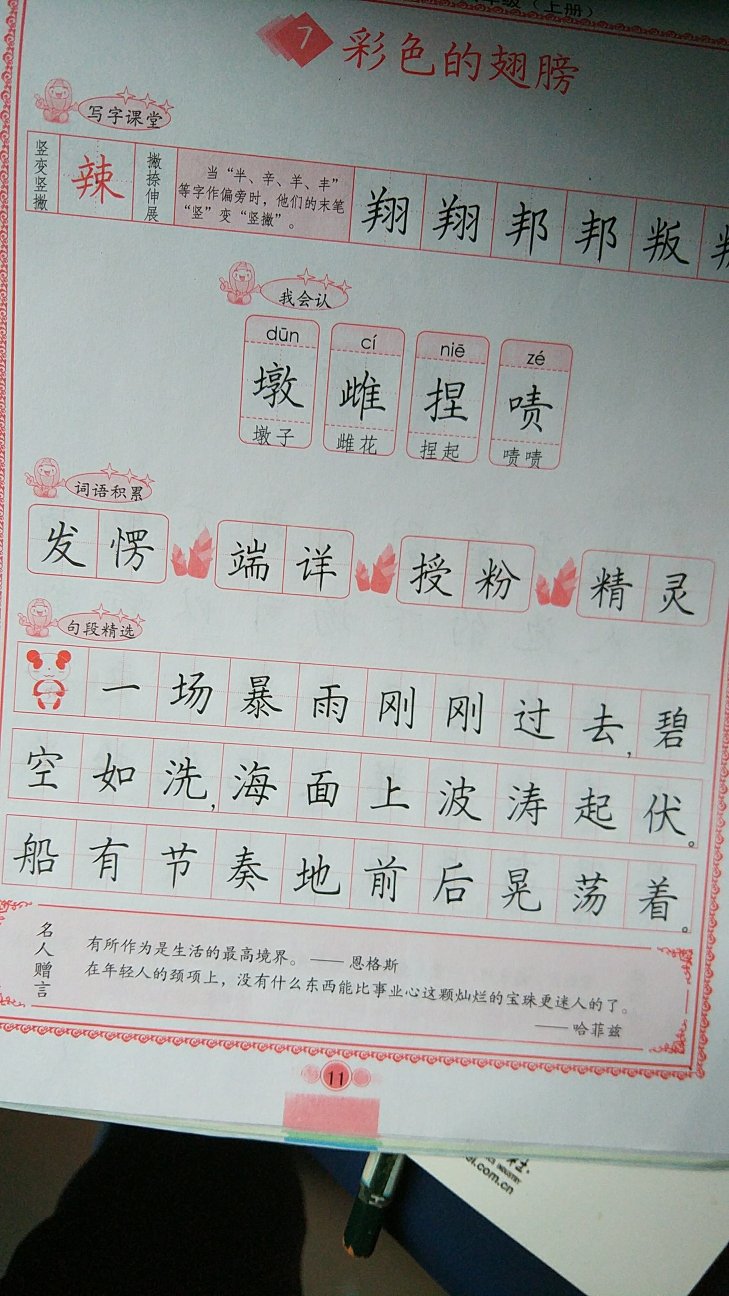 级（上册）
7 彩色的翅膀
写字课堂
竖变竖撇 辣 撇捺伸展
当“半、辛、羊、丰”
等字作偏旁时，他们的末笔
“竖”变“竖撇”。
翔 翔 邦 邦 叛
我会认
dūn cí niē zé
墩 雌 捏 啧
墩子 雌花 捏起 啧啧
词语积累
发愣 端详 授粉 精灵
句段精选
一场暴雨刚刚过去，碧
空如洗，海面上波涛起伏。
船有节奏地前后晃荡着。
名人赠言
有所作为是生活的最高境界。——恩格斯
在年轻人的颈项上，没有什么东西能比事业心这颗灿烂的宝珠更迷人的了。
——哈菲兹
11
社
INDUSTRY
.com.cn